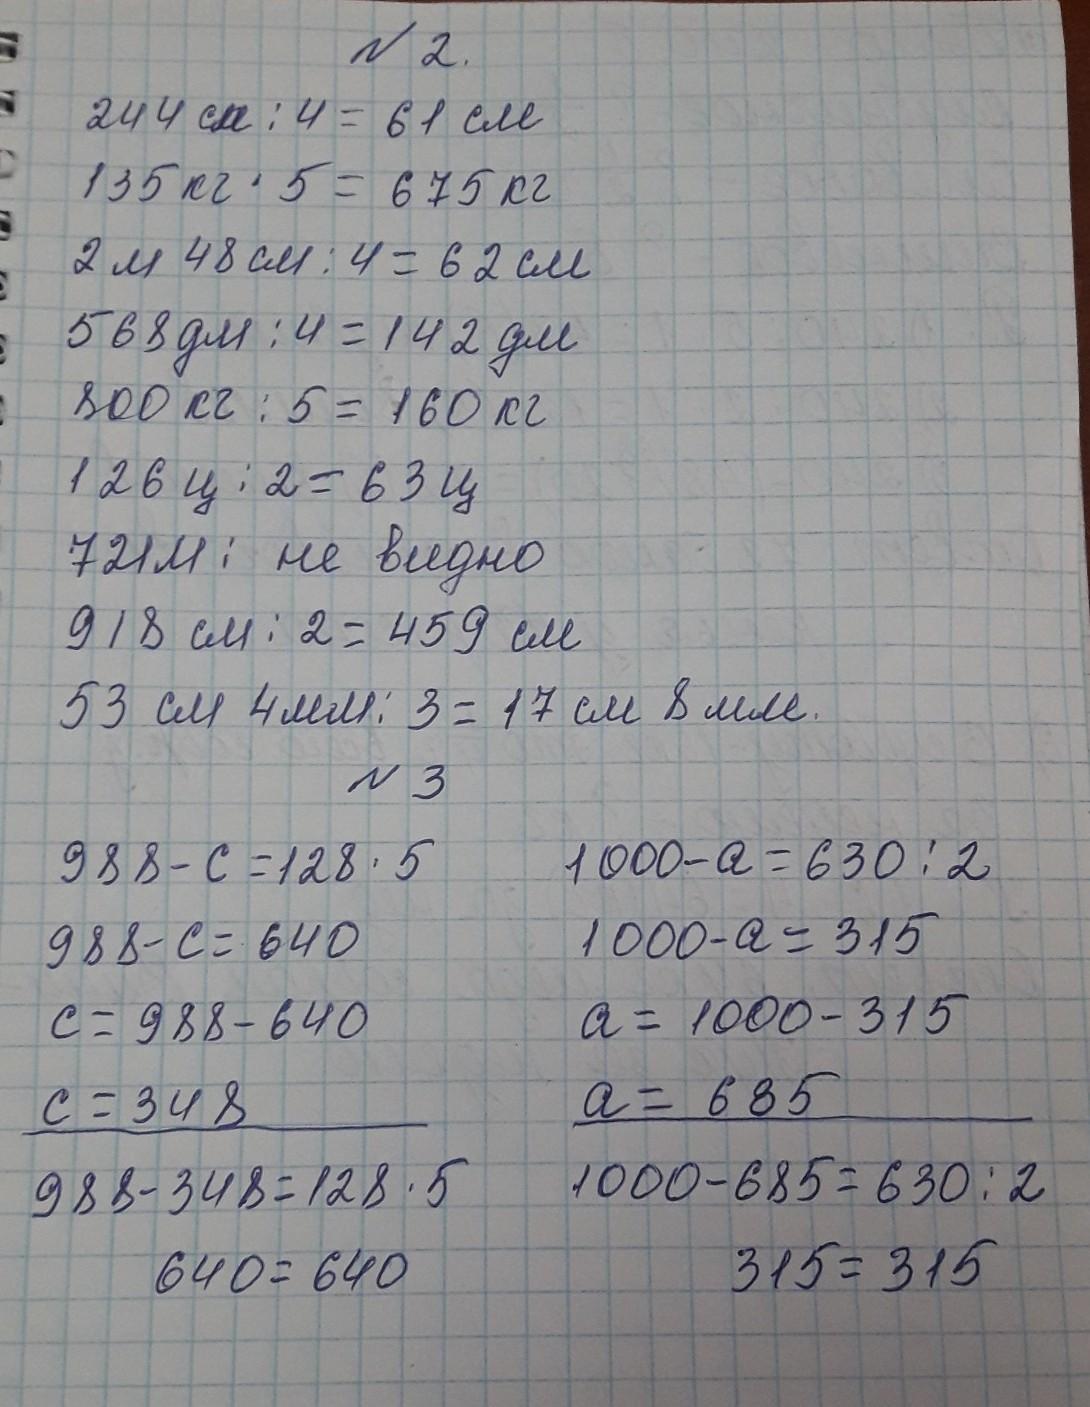 № 2.
244 см : 4 = 61 см
135 кг · 5 = 675 кг
2 м 48 см : 4 = 62 см
568 дм : 4 = 142 дм
800 кг : 5 = 160 кг
126 ц : 2 = 63 ц
721м : не видно
918 см : 2 = 459 см
53 см 4мм : 3 = 17 см 8 мм.
№ 3
988 - с = 128 · 5
988 - с = 640
с = 988 - 640
с = 348
988 - 348 = 128 · 5
640 = 640
1000 - а = 630 : 2
1000 - а = 315
а = 1000 - 315
а = 685
1000 - 685 = 630 : 2
315 = 315